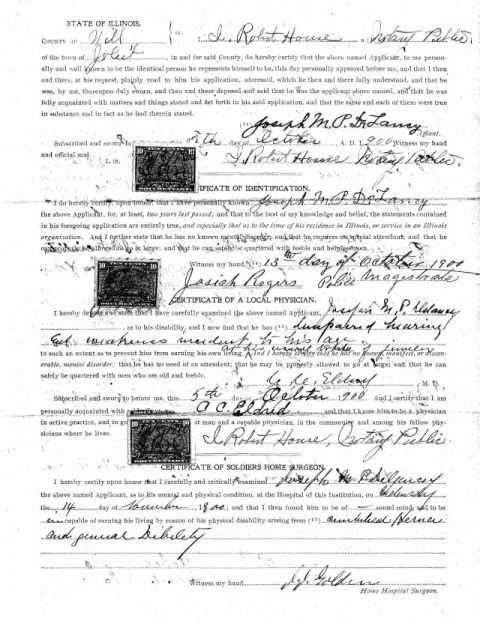 STATE OF ILLINOIS,
COUNTY OF Will ss. I, Robert House a Notary Public
of the town of Joliet, in and for said County, do hereby certify that the above named Applicant, to me person-
ally and well known to be the identical person he represents himself to be, this day personally appeared before me, and that I then
and there, at his request, plainly read to him his application, aforesaid, which he then and there fully understood, and that he
was, by me, thereupon duly sworn, and then and there deposed and said that he was the applicant above named, and that he was
fully acquainted with matters and things stated and set forth in his said application, and that the same and each of them were true
in substance and in fact as he had therein stated.
Joseph M. P. DeLancy
Affiant.
Subscribed and sworn to before day of October A. D. 1900
and official seal. L.S. I. Robert House Notary Public.
CERTIFICATE OF IDENTIFICATION.
I do hereby certify, upon honor, that I have personally known Joseph M. P. DeLancy
the above Applicant, for, at least, two years last passed; and that to the best of my knowledge and belief, the statements contained
in his foregoing application are entirely true, and especially that as to the time of his residence in Illinois, or service in an Illinois
organization. And I further state that he has no manifest, and that he requires no special attendant; and that he
can be allowed to go at large; and that he can be safely quartered with feeble and helpless men.
Witness my hand, 13th day of October 1900
Josiah Rogers Police Magistrate
CERTIFICATE OF A LOCAL PHYSICIAN.
I hereby depose and state that I have carefully examined the above named Applicant, Joseph M. P. Delancy
as to his disability, and I now find that he has impaired hearing
weakness incident to his age
to such an extent as to prevent him from earning his own living. And I hereby certify that he has no manifest, or discov-
erable, mental disorder; that he has no need of an attendant; that he may be properly allowed to go at large; and that he can
safely be quartered with men who are old and feeble.
M. D.
Subscribed and sworn to before me, this 5th day of October 1900. And I certify that I am
personally acquainted with and that I know him to be a physician
in active practice, and in good man and a capable physician, in the community and among his fellow phy-
sicians where he lives. I. Robert House, Notary Public.
CERTIFICATE OF SOLDIERS HOME SURGEON.
I hereby certify upon honor that I carefully and critically examined Joseph
the above named Applicant, as to his mental and physical condition, at the Hospital of this Institution, on
the 14 day of 1900; and that I then found him to be of — sound mind, and to be
incapable of earning his living by reason of his physical disability arising from Hernia
and general Debility
Witness my hand J. J. Golden
Home Hospital Surgeon.